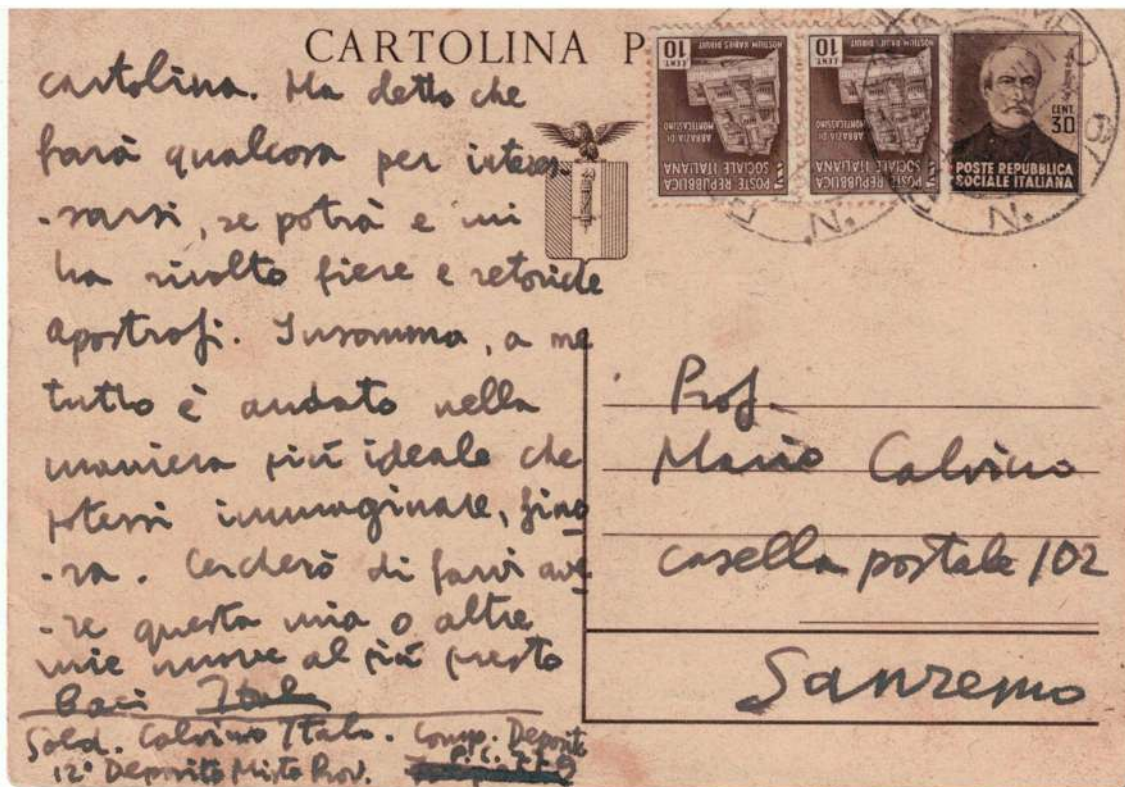 CARTOLINA P
cartolina. Ha detto che
farà qualcosa per interes-
-sarsi, se potrà e mi
ha rivolto fiere e retoriche
apostrofi. Insomma, a me
tutto è andato nella
maniera più ideale che
potessi immaginare, fino
-ra. Cercherò di farvi ave
-re questa mia o altre
mie nuove al più presto
Baci Italo
Sold. Calvino Italo. Comp. Deposito
12° Deposito Misto Prov.
P.C.
CENT. 10
HOSTIUM RABIES DIRUIT
ABBAZIA DI
MONTECASSINO
POSTE REPUBBLICA
SOCIALE ITALIANA
CENT. 10
HOSTIUM RABIES DIRUIT
ABBAZIA DI
MONTECASSINO
POSTE REPUBBLICA
SOCIALE ITALIANA
CENT.
30
POSTE REPUBBLICA
SOCIALE ITALIANA
Prof.
Mario Calvino
casella postale 102
Sanremo